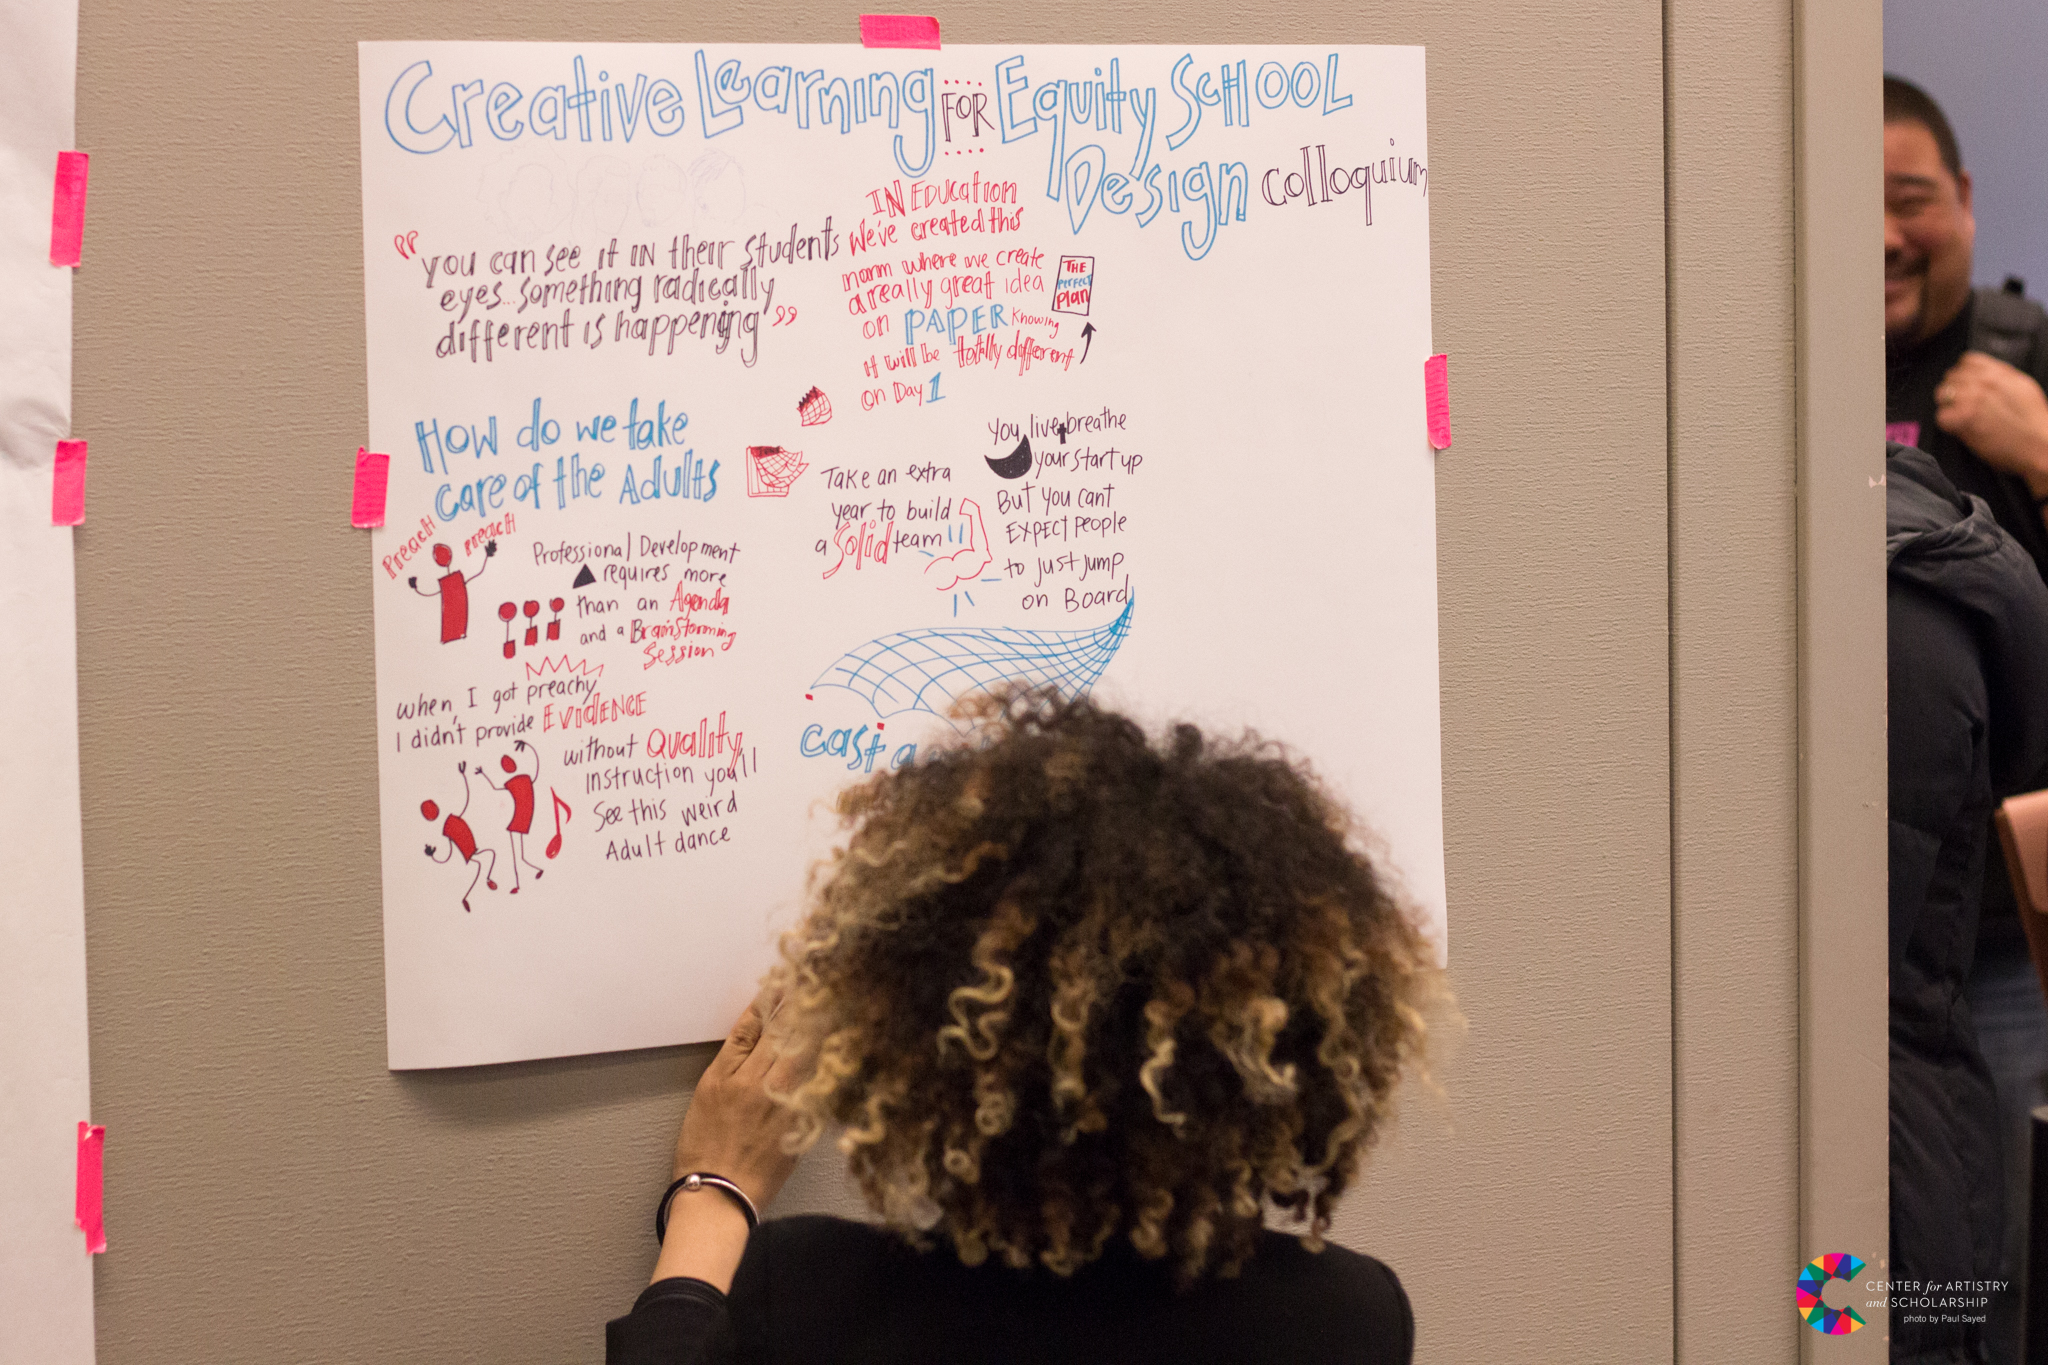 Creative Learning FOR Equity SCHOOL
Design Colloquium
"you can see it IN their students
eyes... something radically
different is happening"
IN Education
We've created this
norm where we create
a really great idea
on PAPER knowing
it will be totally different
on Day 1
THE
PERFECT
Plan
How do we take
care of the Adults
PREACH
PREACH
Professional Development
requires more
than an Agenda
and a Brainstorming
Session
when I got preachy
I didn't provide EVIDENCE
without Quality
instruction you'll
See this weird
Adult dance
Take an extra
year to build
a Solid team
You live breathe
your start up
But you cant
EXPECT People
to just jump
on Board
cast a
CENTER for ARTISTRY
and SCHOLARSHIP
photo by Paul Sayed